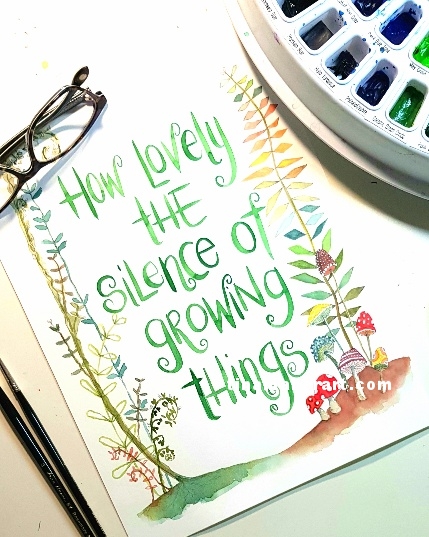 How Lovely
tHE
silence of
growing
things